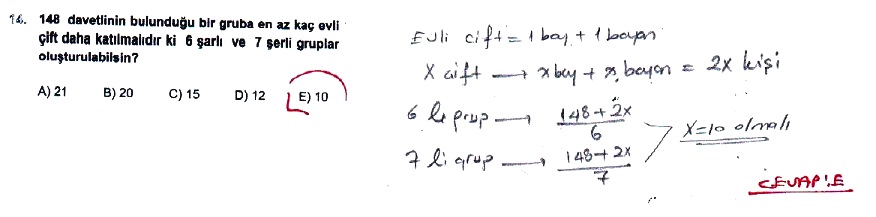 14. 148 davetlinin bulunduğu bir gruba en az kaç evli
çift daha katılmalıdır ki 6 şarlı ve 7 şerli gruplar
oluşturulabilsin?
A) 21 B) 20 C) 15 D) 12 E) 10
Evli çift = 1 bay + 1 bayan
X çift → x bay + x bayan = 2x kişi
6 lı grup → 148+2x / 6
7 li grup → 148+2x / 7
X=10 olmalı
CEVAP: E